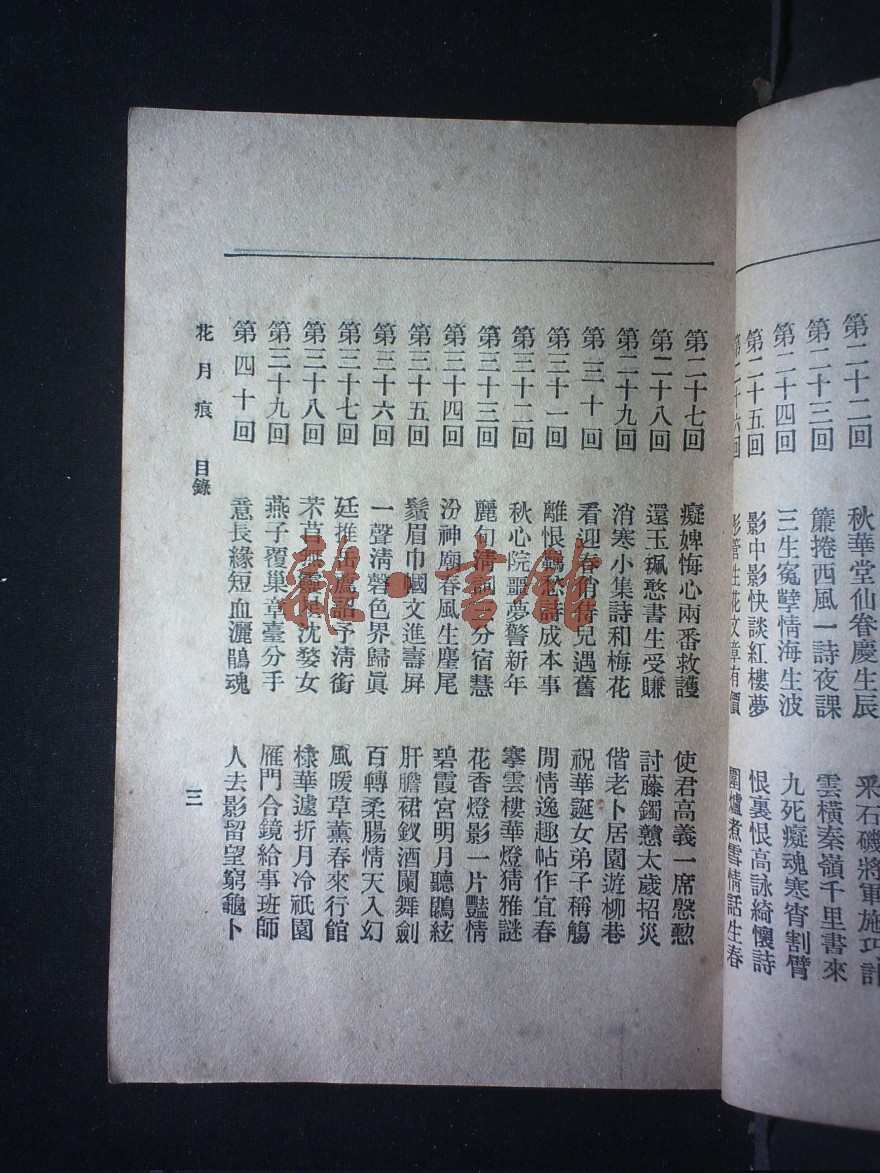 第二十二回 秋華堂仙眷慶生辰 采石磯將軍施巧計
第二十三回 簾捲西風一詩夜課 雲橫秦嶺千里書來
第二十四回 三生冤孽情海生波 九死癡魂寒宵割臂
第二十五回 影中影快談紅樓夢 恨裏恨高詠綺懷詩
第二十六回 彤管生花文章有價 圍爐煮雪情話生春
第二十七回 癡婢悔心兩番救護 使君高義一席慇懃
第二十八回 還玉珮憨書生受賺 討藤鐲戇太歲招災
第二十九回 消寒小集詩和梅花 偕老卜居園遊柳巷
第三十回 看迎春俏侍兒遇舊 祝華誕女弟子稱觴
第三十一回 離恨羈愁詩成本事 閒情逸趣帖作宜春
第三十二回 秋心院噩夢警新年 搴雲樓華燈猜雅謎
第三十三回 麗句清詞三分宿慧 花香燈影一片豔情
第三十四回 汾神廟春風生麈尾 碧霞宮明月聽鵾絃
第三十五回 鬚眉巾幗文進壽屏 肝膽裙釵酒闌舞劍
第三十六回 一聲清磬色界歸眞 百轉柔腸情天入幻
第三十七回 廷推岳薦詔予清銜 風暖草薰春來行館
第三十八回 芣苢 沈婺女 棣華遽折月冷祇園
第三十九回 燕子覆巢章臺分手 雁門合鏡給事班師
第四十回 意長緣短血灑鵑魂 人去影留望窮龜卜
花月痕 目錄 三
雜·書館